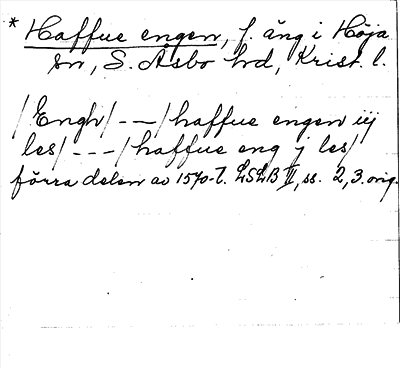 * Haffue engen, f. äng i Höja
sn, S. Åsbo hd, Krist. l.
/Engh/ - - -/haffue engen iij
les/ - - - /haffue eng j les/
förra delen av 1570-t. LSLB II, ss. 2, 3. orig.